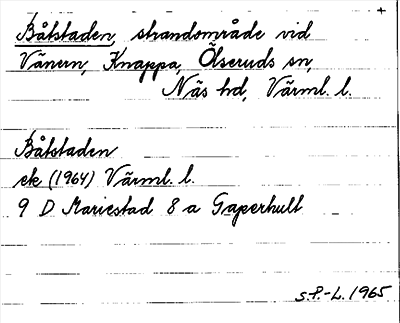 +
Båtstaden, strandområde vid
Vänern, Knappa, Ölseruds sn,
Näs hd, Värml. l.
Båtstaden
ek (1964) Värml. l.
9 D Mariestad 8 a Gaperhult
S.P.-L. 1965